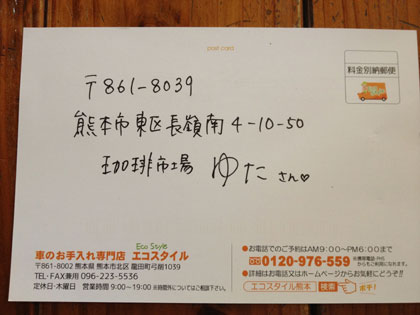 post card
料金別納郵便
〒861-8039
熊本市東区長嶺南4-10-50
珈琲市場 ゆた さん♡
Eco Style
車のお手入れ専門店 エコスタイル
〒861-8002 熊本県 熊本市北区 龍田町弓削1039
TEL・FAX兼用 096-223-5536
定休日・木曜日 営業時間 9:00〜19:00 ※時間外についてはご相談下さい。
●お電話でのご予約はAM9:00〜PM6:00まで
0120-976-559
●詳細はお電話又はホームページからお気軽にどうぞ!!
エコスタイル熊本 検索